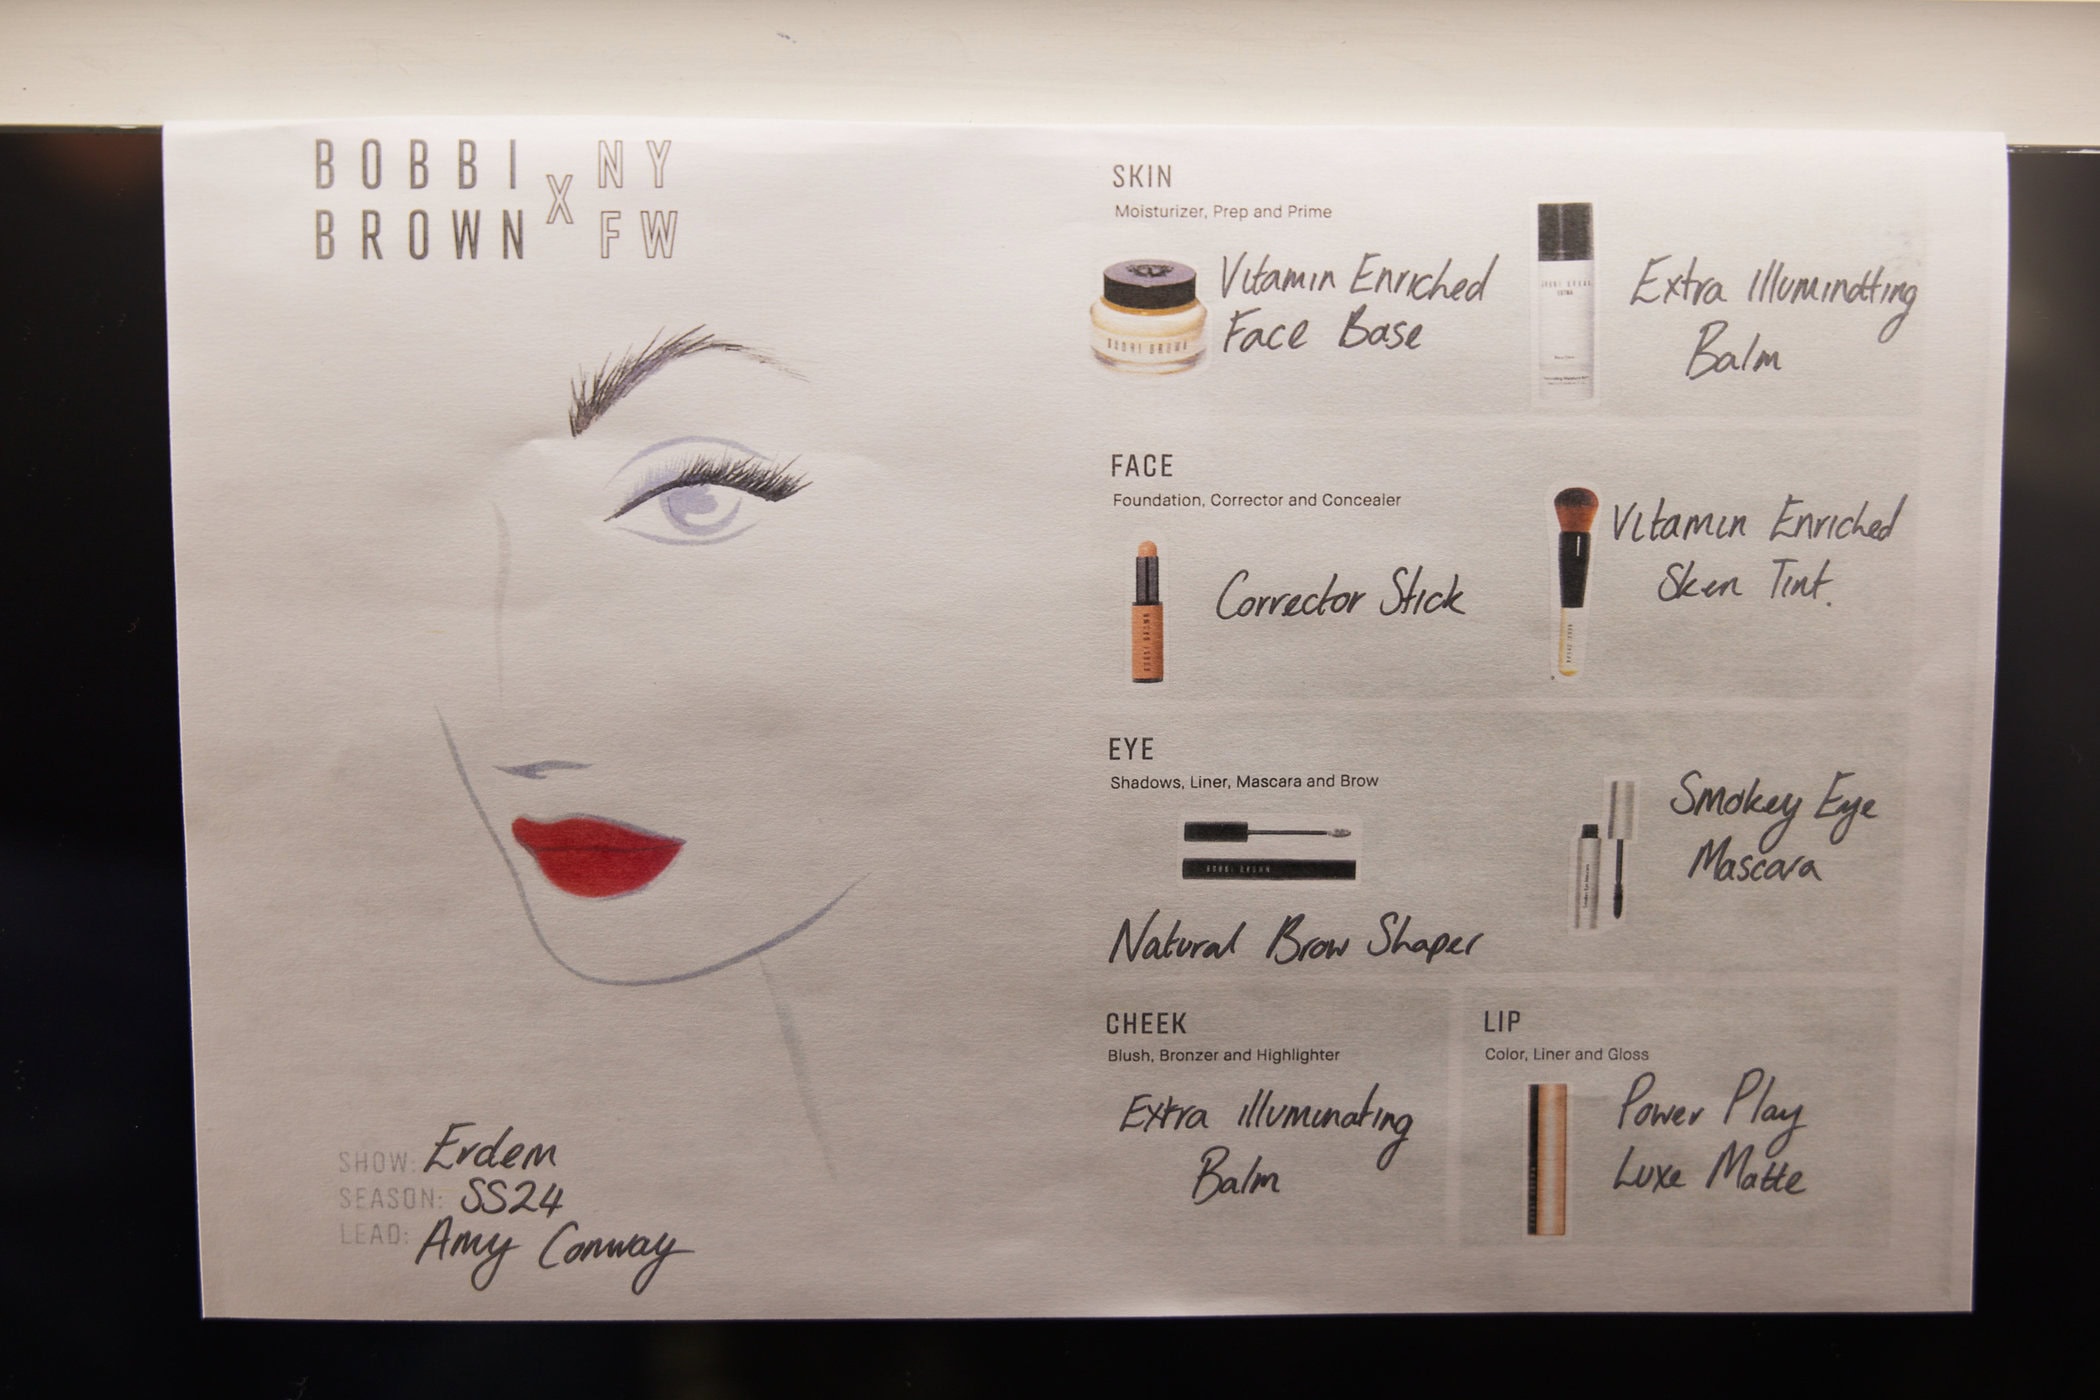 BOBBI X NY
BROWN FW
SKIN
Moisturizer, Prep and Prime
Vitamin Enriched
Face Base
BOBBI BROWN
Extra Illuminatting
Balm
BOBBI BROWN
EXTRA
FACE
Foundation, Corrector and Concealer
Corrector Stick
BOBBI BROWN
Vitamin Enriched
Sken Tint.
BOBBI BROWN
EYE
Shadows, Liner, Mascara and Brow
BOBBI BROWN
Natural Brow Shaper
Smokey Eye
Mascara
CHEEK
Blush, Bronzer and Highlighter
Extra Illuminating
Balm
LIP
Color, Liner and Gloss
Power Play
Luxe Matte
BOBBI BROWN
SHOW: Erdem
SEASON: SS24
LEAD: Amy Conway